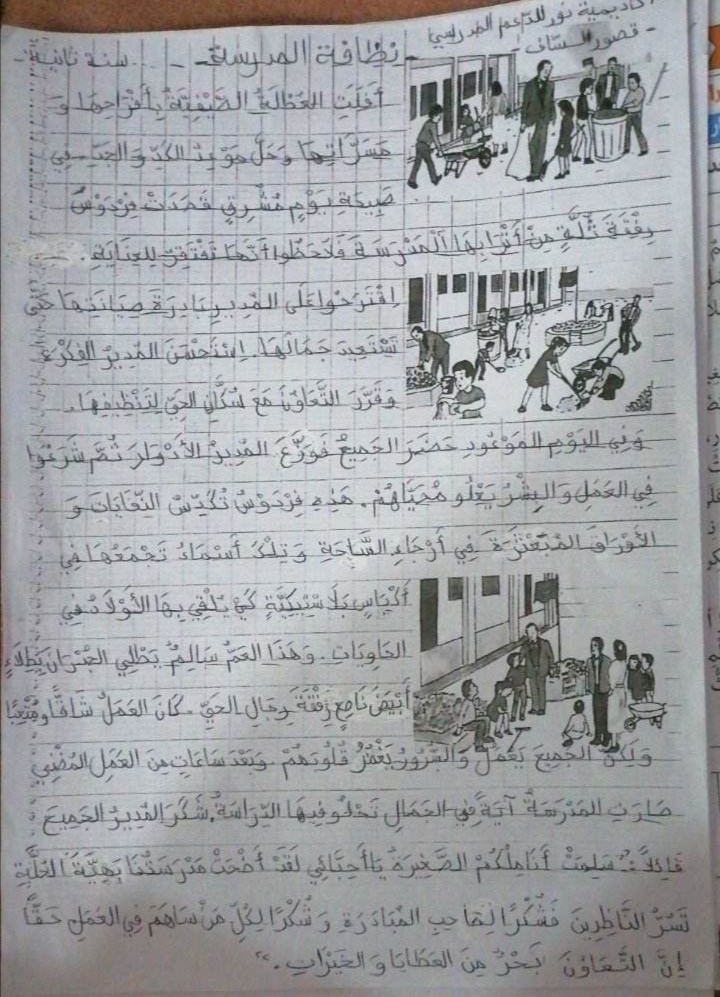 أكاديمية نور للدعم المدرسي
- قصور الساف -
- نظافة المدرسة - ... سنة ثانية -
أَفَلَتِ العُطْلَةُ الصَّيْفِيَّةُ بِأَفْرَاحِهَا وَ
مَسَرَّاتِهَا وَحَلَّ مَوْعِدُ الكَدِّ وَالجِدِّ. فِي
صَبِيحَةِ يَوْمٍ مُشْرِقٍ قَصَدَتْ فِرْدَوْسُ
رِفْقَةَ ثُلَّةٍ مِنْ أَتْرَابِهَا اَلْمَدْرَسَةَ فَلَاحَظُوا أَنَّهَا تَفْتَقِرُ لِلْعِنَايَةِ.
اِقْتَرَحُوا عَلَى المُدِيرِ مُبَادَرَةَ صِيَانَتِهَا حَتَّى
تَسْتَعِيدَ جَمَالَهَا. اِسْتَحْسَنَ المُدِيرُ الفِكْرَةَ
وَقَرَّرَ التَّعَاوُنَ مَعَ سُكَّانِ الحَيِّ لِتَنْظِيفِهَا.
وَفِي اليَوْمِ المَوْعُودِ حَضَرَ الجَمِيعُ فَوَزَّعَ المُدِيرُ الأَدْوَارَ ثُمَّ شَرَعُوا
فِي العَمَلِ وَالبِشْرُ يَعْلُو مُحَيَّاهُمْ. هَذِهِ فِرْدَوْسُ تُكَدِّسُ النِّفَايَاتِ وَ
الأَوْرَاقَ المُتَبَعْثِرَةَ فِي أَرْجَاءِ السَّاحَةِ وَتِلْكَ أَسْمَاءُ تَجْمَعُهَا فِي
أَكْيَاسٍ بَلَاسْتِيكِيَّةٍ كَيْ يُلْقِيَ بِهَا الأَوْلَادُ فِي
الحَاوِيَاتِ. وَهَذَا العَمُّ سَالِمٌ يَطْلِي الجُدْرَانَ بِطِلَاءٍ
أَبْيَضَ نَاصِعٍ رِفْقَةَ رِجَالِ الحَيِّ. كَانَ العَمَلُ شَاقًّا وَمُتْعِبًا
وَلَكِنَّ الجَمِيعَ يَعْمَلُ وَالسُّرُورُ يَغْمُرُ قُلُوبَهُمْ. وَبَعْدَ سَاعَاتٍ مِنَ العَمَلِ المُضْنِي
صَارَتِ المَدْرَسَةُ آيَةً فِي الجَمَالِ تَحْلُو فِيهَا الدِّرَاسَةُ. شَكَرَ المُدِيرُ الجَمِيعَ
قَائِلًا: "سَلِمَتْ أَنَامِلُكُمْ الصَّغِيرَةُ يَا أَحِبَّائِي لَقَدْ أَضْحَتْ مَدْرَسَتُنَا بَهِيَّةَ الحُلَّةِ
تَسُرُّ النَّاظِرِينَ فَشُكْرًا لِصَاحِبِ المُبَادَرَةِ وَ شُكْرًا لِكُلِّ مَنْ سَاهَمَ فِي العَمَلِ حَقًّا
إِنَّ التَّعَاوُنَ بَحْرٌ مِنَ العَطَايَا وَ الخَيْرَاتِ."